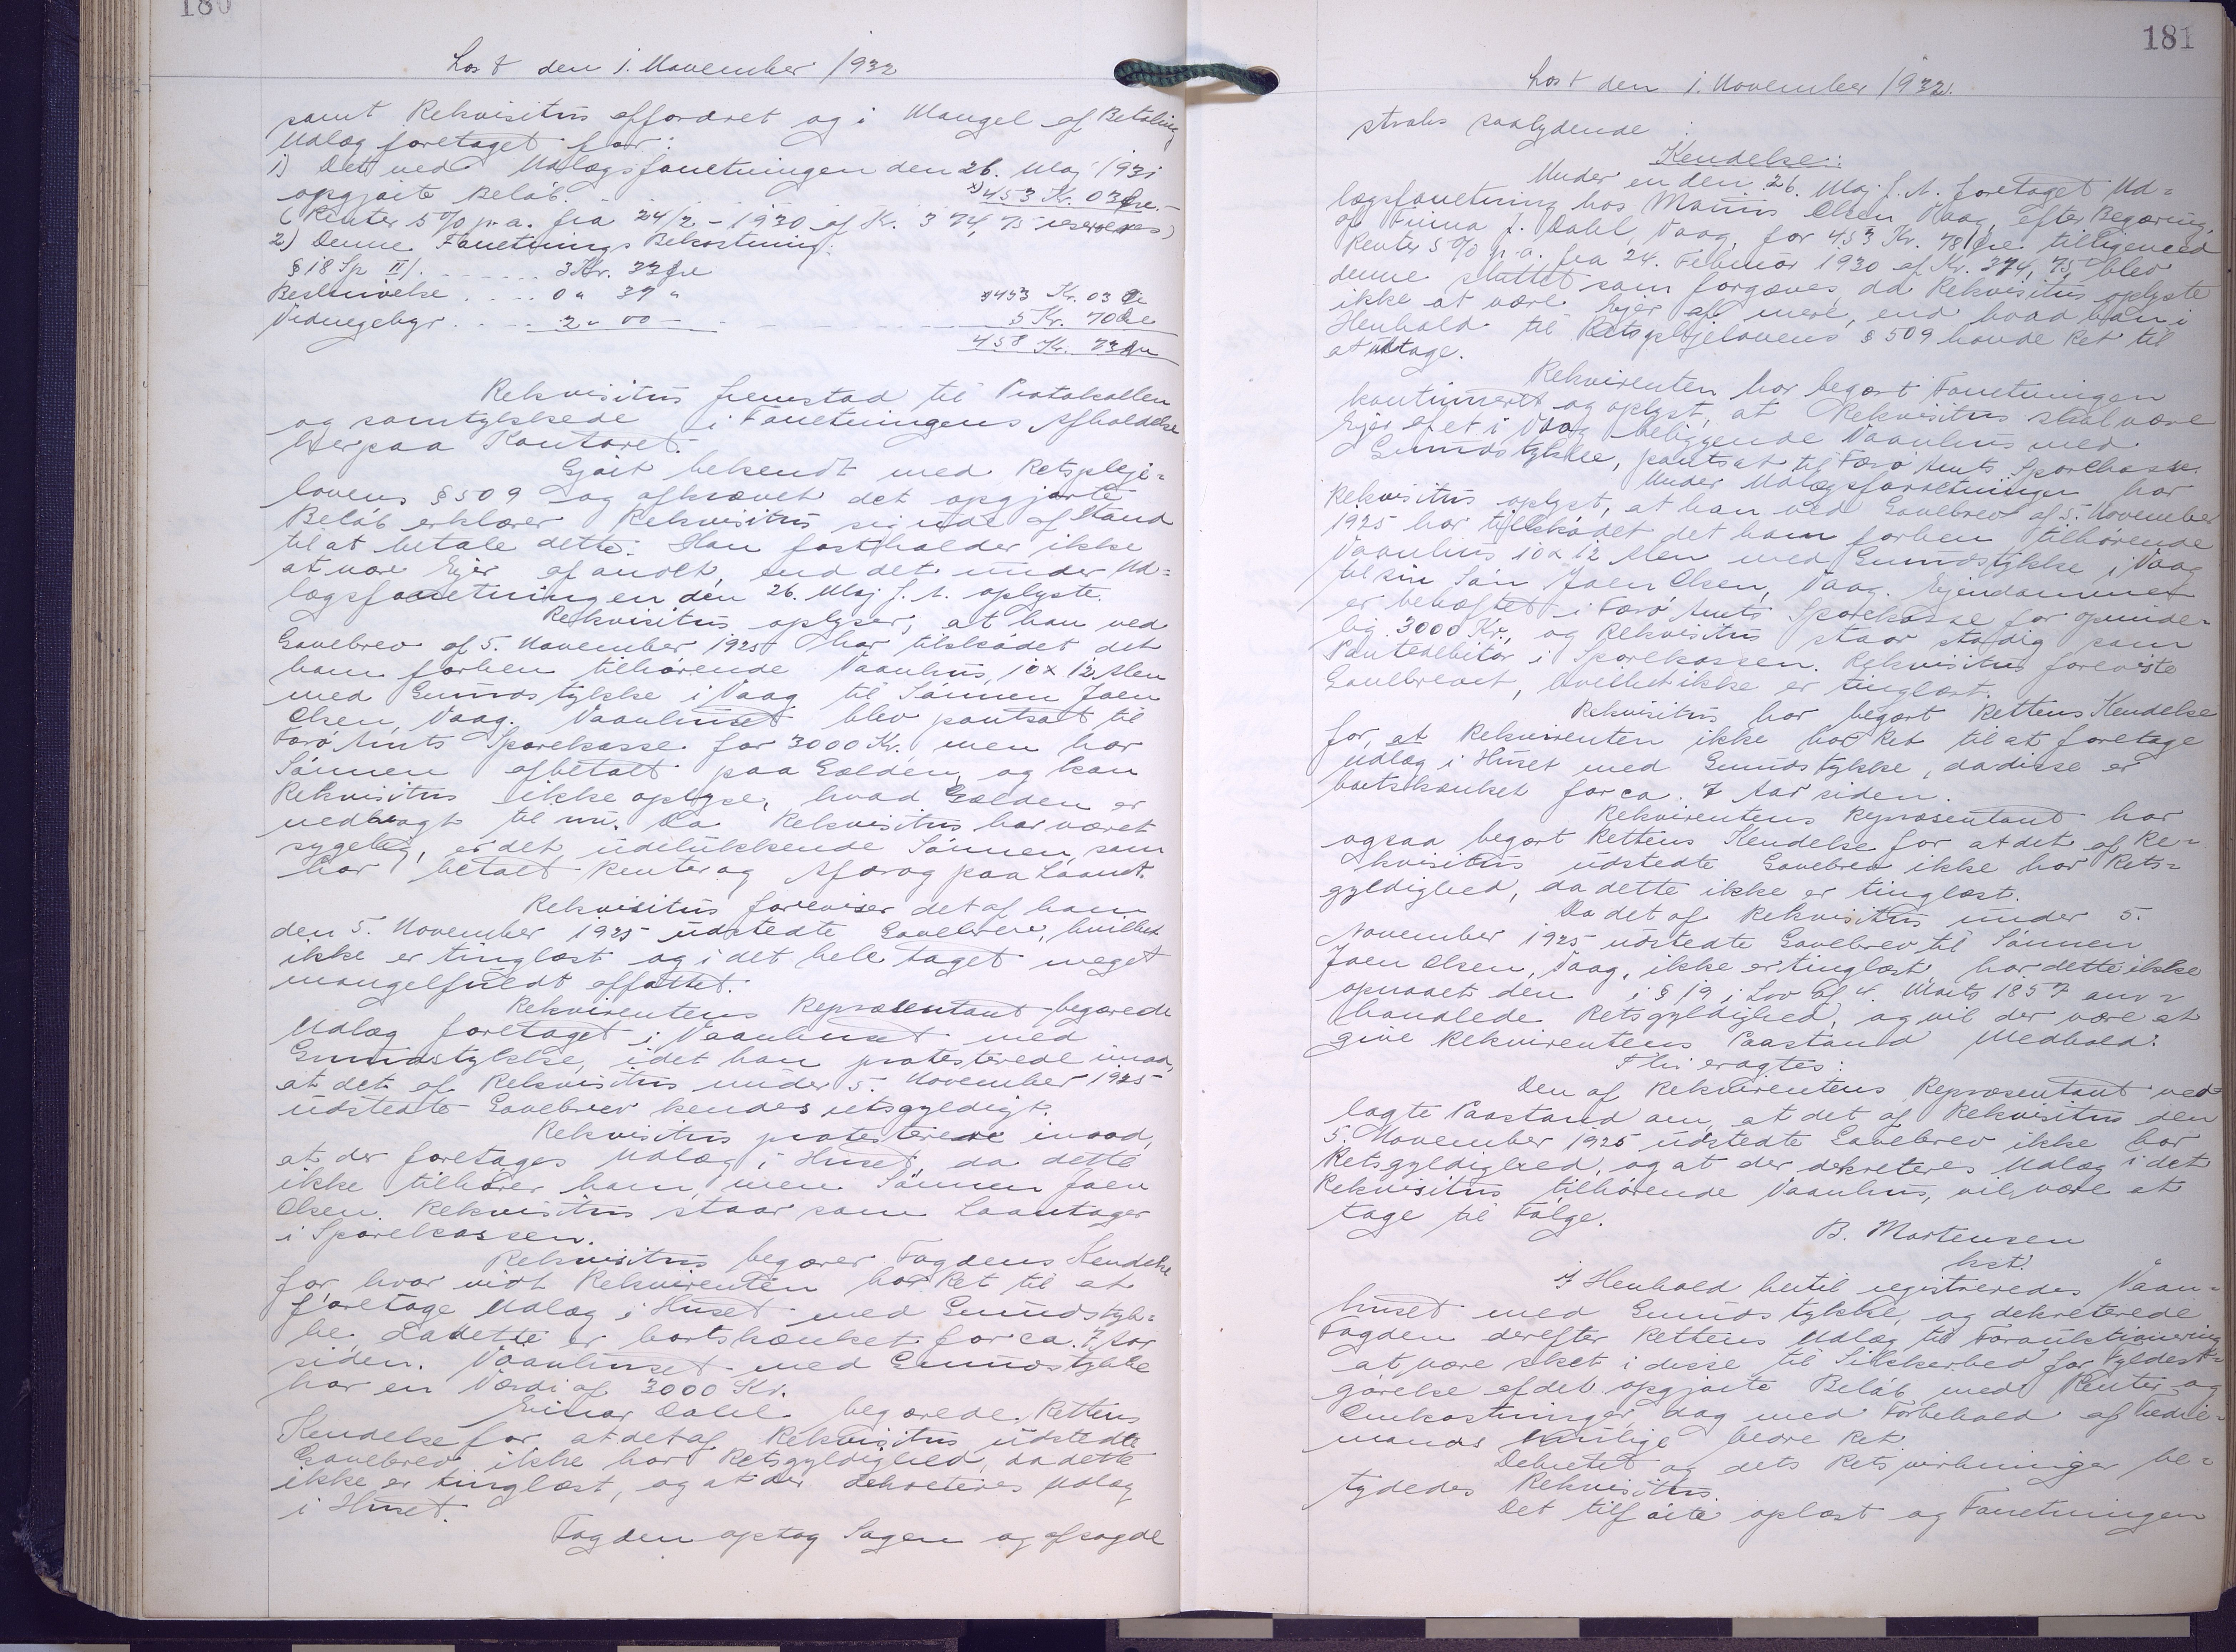 180
Lost den 1. November 1932
samt Rekvisitus opfordret og i Mangel af Betaling
Udlæg foretaget for:
1) Det ved Udlægsforretningen den 26. Maj 1931
opgjorte Beløb. x) 453 Kr. 03 Øre.
(Renter 5% p.a. fra 24/2 - 1930 af Kr. 374,75 reserveres)
2) Denne Forretnings Bekostning:
§ 18 Sp II/. ..... 3 Kr. 33 Øre
Beskrivelse .... 0 " 37 " 453 Kr. 03 Øre
Vidnegebyr. .... 2 - 00 - 5 Kr. 70 Øre
458 Kr. 73 Øre
Rekvisitus fremstod til Protokollen
og samtykkede i Forretningens Afholdelse
herpaa Kontoret.
Gjort bekendt med Retspleje-
lovens § 509 og afkrævet det opgjorte
Beløb erklærer Rekvisitus sig ude af Stand
til at betale dette. Han fastholder ikke
at være Ejer af andet, end det under Ud-
lægsforretningen den 26. Maj f. A. oplyste.
Rekvisitus oplyser, at han ved
Gavebrev af 5. November 1925 har tilskødet det
ham forhen tilhørende Vaanhus, 10 x 12 Alen
med Grundstykke i Vaag til Sønnen Joen
Olsen, Vaag. Vaanhuset blev pantsat til
Færø Amts Sparekasse for 3000 Kr. men har
Sønnen afbetalt paa Gælden, og kan
Rekvisitus ikke oplyse, hvad Gælden er
nedbragt til nu. Da Rekvisitus har været
sygelig, er det udelukkende Sønnen, som
har betalt Renter og Afdrag paa Laanet.
Rekvisitus foreviser det af ham
den 5. November 1925 udstedte Gavebrev, hvilket
ikke er tinglæst og i det hele taget meget
mangelfuldt affattet.
Rekvirentens Repræsentant begærede
Udlæg foretaget i Vaanhuset med
Grundstykke, idet han protesterede imod,
at det af Rekvisitus under 5. November 1925
udstedte Gavebrev kendes retsgyldigt.
Rekvisitus protesterede imod,
at der foretages Udlæg i Huset, da dette
ikke tilhører ham, men Sønnen Joen
Olsen. Rekvisitus staar som Laantager
i Sparekassen.
Rekvisitus begærer Fogdens Kendelse
for, hvor vidt Rekvirenten har Ret til at
foretage Udlæg i Huset med Grundstyk-
ke, da dette er bortskænket for ca. 7 Aar
siden. Vaanhuset med Grundstykke
har en Værdi af 3000 Kr.
Einar Dahl begærede Rettens
Kendelse for at det af Rekvisitus udstedte
Gavebrev ikke har Retsgyldighed, da dette
ikke er tinglæst, og at der dekreteres Udlæg
i Huset.
Fogden optog Sagen og afsagde
181
Lost den 1. November 1932.
straks saalydende :
Kendelse:
Under en den 26. Maj f. A. foretaget Ud-
lægsforretning hos Mouns Olsen, Vaag, efter Begæring
af Firma J. Dahl, Vaag, for 453 Kr. 78 Øre tilligemed
Renter 5% p.a. fra 24. Februar 1930 af Kr. 374,75, blev
denne sluttet som forgæves, da Rekvisitus oplyste
ikke at være Ejer af mere, end hvad han i
Henhold til Retsplejelovens § 509 havde Ret til
at udtage.
Rekvirenten har begært Forretningen
kontinueret og oplyst, at Rekvisitus skal være
Ejer af et i Vaag beliggende Vaanhus med
Grundstykke, pantsat til Færø Amts Sparekasse.
Under Udlægsforretningen har
Rekvisitus oplyst, at han ved Gavebrev af 5. November
1925 har tilskødet det ham forhen tilhørende
Vaanhus 10 x 12 Alen med Grundstykke i Vaag
til sin Søn Joen Olsen, Vaag. Ejendommen
er behæftet i Færø Amts Sparekasse for oprinde-
lig 3000 Kr., og Rekvisitus staar stadig som
Pantedebitor i Sparekassen. Rekvisitus foreviste
Gavebrevet, hvilket ikke er tinglæst.
Rekvisitus har begært Rettens Kendelse
for, at Rekvirenten ikke har Ret til at foretage
Udlæg i Huset med Grundstykke, da disse er
bortskænket for ca. 7 Aar siden.
Rekvirentens Repræsentant har
ogsaa begært Rettens Kendelse for at det af Re-
kvisitus udstedte Gavebrev ikke har Rets-
gyldighed, da dette ikke er tinglæst.
Da det af Rekvisitus under 5.
November 1925 udstedte Gavebrev til Sønnen
Joen Olsen, Vaag, ikke er tinglæst, har dette ikke
opnaaet den i § 19 i Lov af 4. Marts 1857 om-
handlede Retsgyldighed, og vil der være at
give Rekvirentens Paastand Medhold.
Thi eragtes:
Den af Rekvirentens Repræsentant ned-
lagte Paastand om, at det af Rekvisitus den
5. November 1925 udstedte Gavebrev ikke har
Retsgyldighed, og at der dekreteres Udlæg i det
Rekvisitus tilhørende Vaanhus, vil være at
tage til Følge.
B. Mortensen
kst.
I Henhold hertil registreredes Vaan-
huset med Grundstykke, og dekreterede
Fogden derefter Rettens Udlæg til Forauktionering
at være sket i disse til Sikkerhed for Fyldest-
gørelse af det opgjorte Beløb med Renter og
Omkostninger, dog med Forbehold af tredie-
mands mulige bedre Ret.
Dekretet og dets Retsvirkninger be-
tydedes Rekvisitus.
Det tilførte oplæst og Forretningen